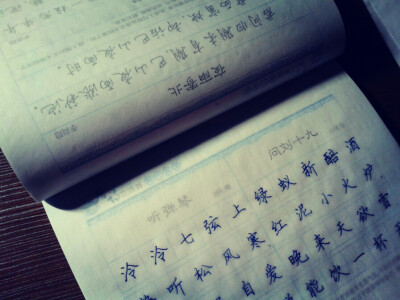 夜雨寄北
君问归期未有期 巴山夜雨涨秋池
西窗烛 却话巴山夜雨时
听弹琴
问刘十九
冷冷七弦上 绿蚁新醅酒
听松风寒 红泥小火炉
自爱 晚来天欲雪
能饮一杯